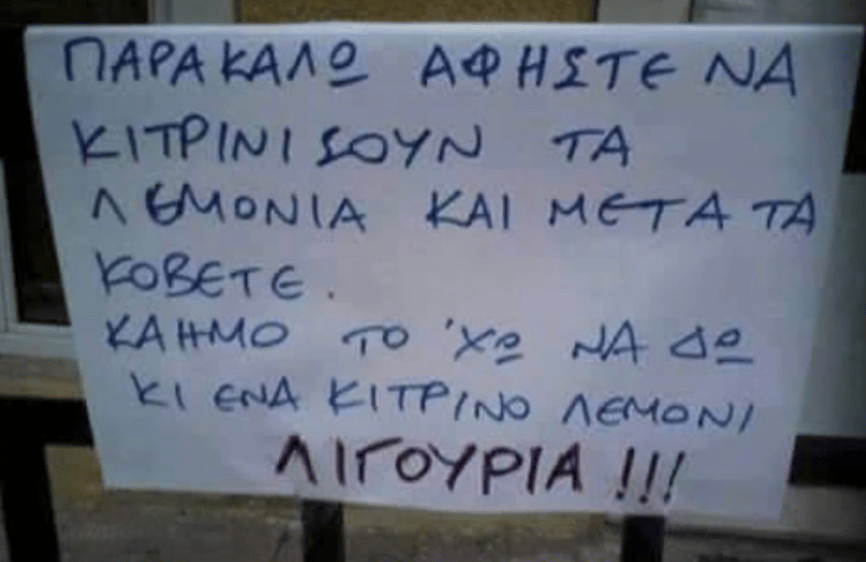 ΠΑΡΑΚΑΛΩ ΑΦΗΣΤΕ ΝΑ
ΚΙΤΡΙΝΙΣΟΥΝ ΤΑ
ΛΕΜΟΝΙΑ ΚΑΙ ΜΕΤΑ ΤΑ
ΚΟΒΕΤΕ.
ΚΑΗΜΟ ΤΟ 'ΧΩ ΝΑ ΔΩ
ΚΙ ΕΝΑ ΚΙΤΡΙΝΟ ΛΕΜΟΝΙ
ΛΙΓΟΥΡΙΑ!!!